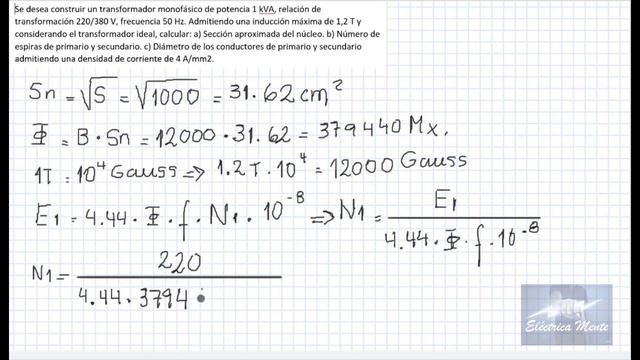 Se desea construir un transformador monofásico de potencia 1 kVA, relación de
transformación 220/380 V, frecuencia 50 Hz. Admitiendo una inducción máxima de 1,2 T y
considerando el transformador ideal, calcular: a) Sección aproximada del núcleo. b) Número de
espiras de primario y secundario. c) Diámetro de los conductores de primario y secundario
admitiendo una densidad de corriente de 4 A/mm2.
Sn = √S = √1000 = 31.62 cm²
Φ = B · Sn = 12000 · 31.62 = 379440 Mx.
1T = 10⁴ Gauss => 1.2 T · 10⁴ = 12000 Gauss
E1 = 4.44 · Φ · f · N1 · 10⁻⁸ => N1 = E1 / 4.44 · Φ · f · 10⁻⁸
N1 = 220 / 4.44 · 3794
Eléctrica Mente